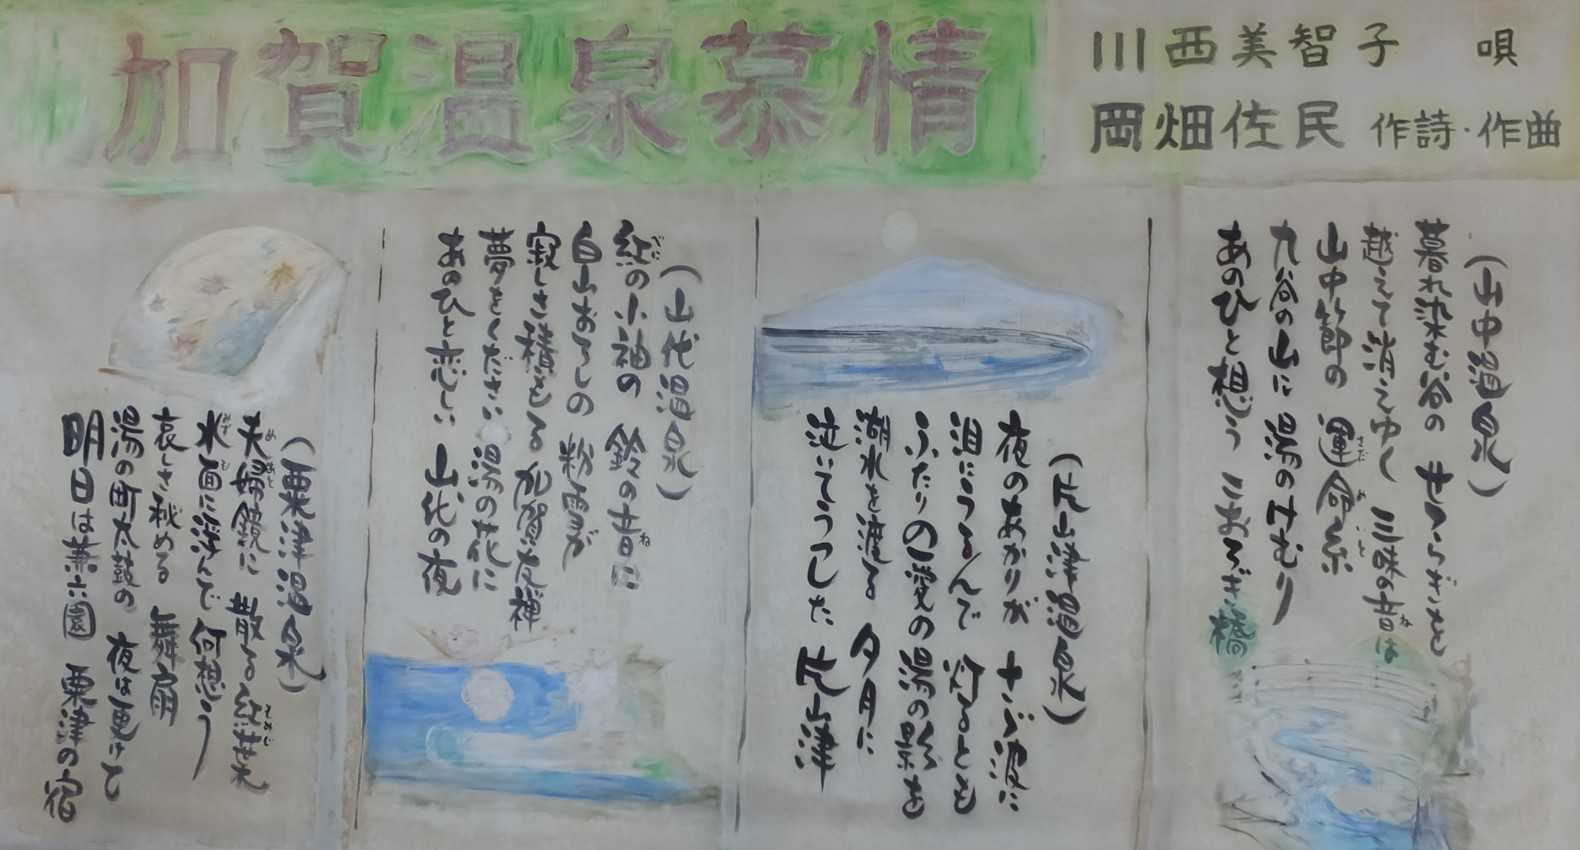 加賀温泉慕情
川西美智子 唄
岡畑佐民 作詩・作曲
(山中温泉)
暮れ染む谷の せゝらぎを
越えて消えゆく 三味の音は
山中節の 運命糸
九谷の山に 湯のけむり
あのひと想う こおろぎ橋
(片山津温泉)
夜のあかりが さざ波に
泪にうるんで 灯るとも
ふたりの愛の湯の影を
湖水を渡る 夕月に
泣いてうつした 片山津
(山代温泉)
紅の小袖の 鈴の音に
白山おろしの 粉雪が
寂しさ積もる 加賀友禅
夢をください 湯の花に
あのひと恋しい 山代の夜
(粟津温泉)
夫婦鏡に 散る紅葉
水面に浮んで 何想う
哀しさ秘める 舞扇
湯の町太鼓の 夜は更けて
明日は兼六園 粟津の宿